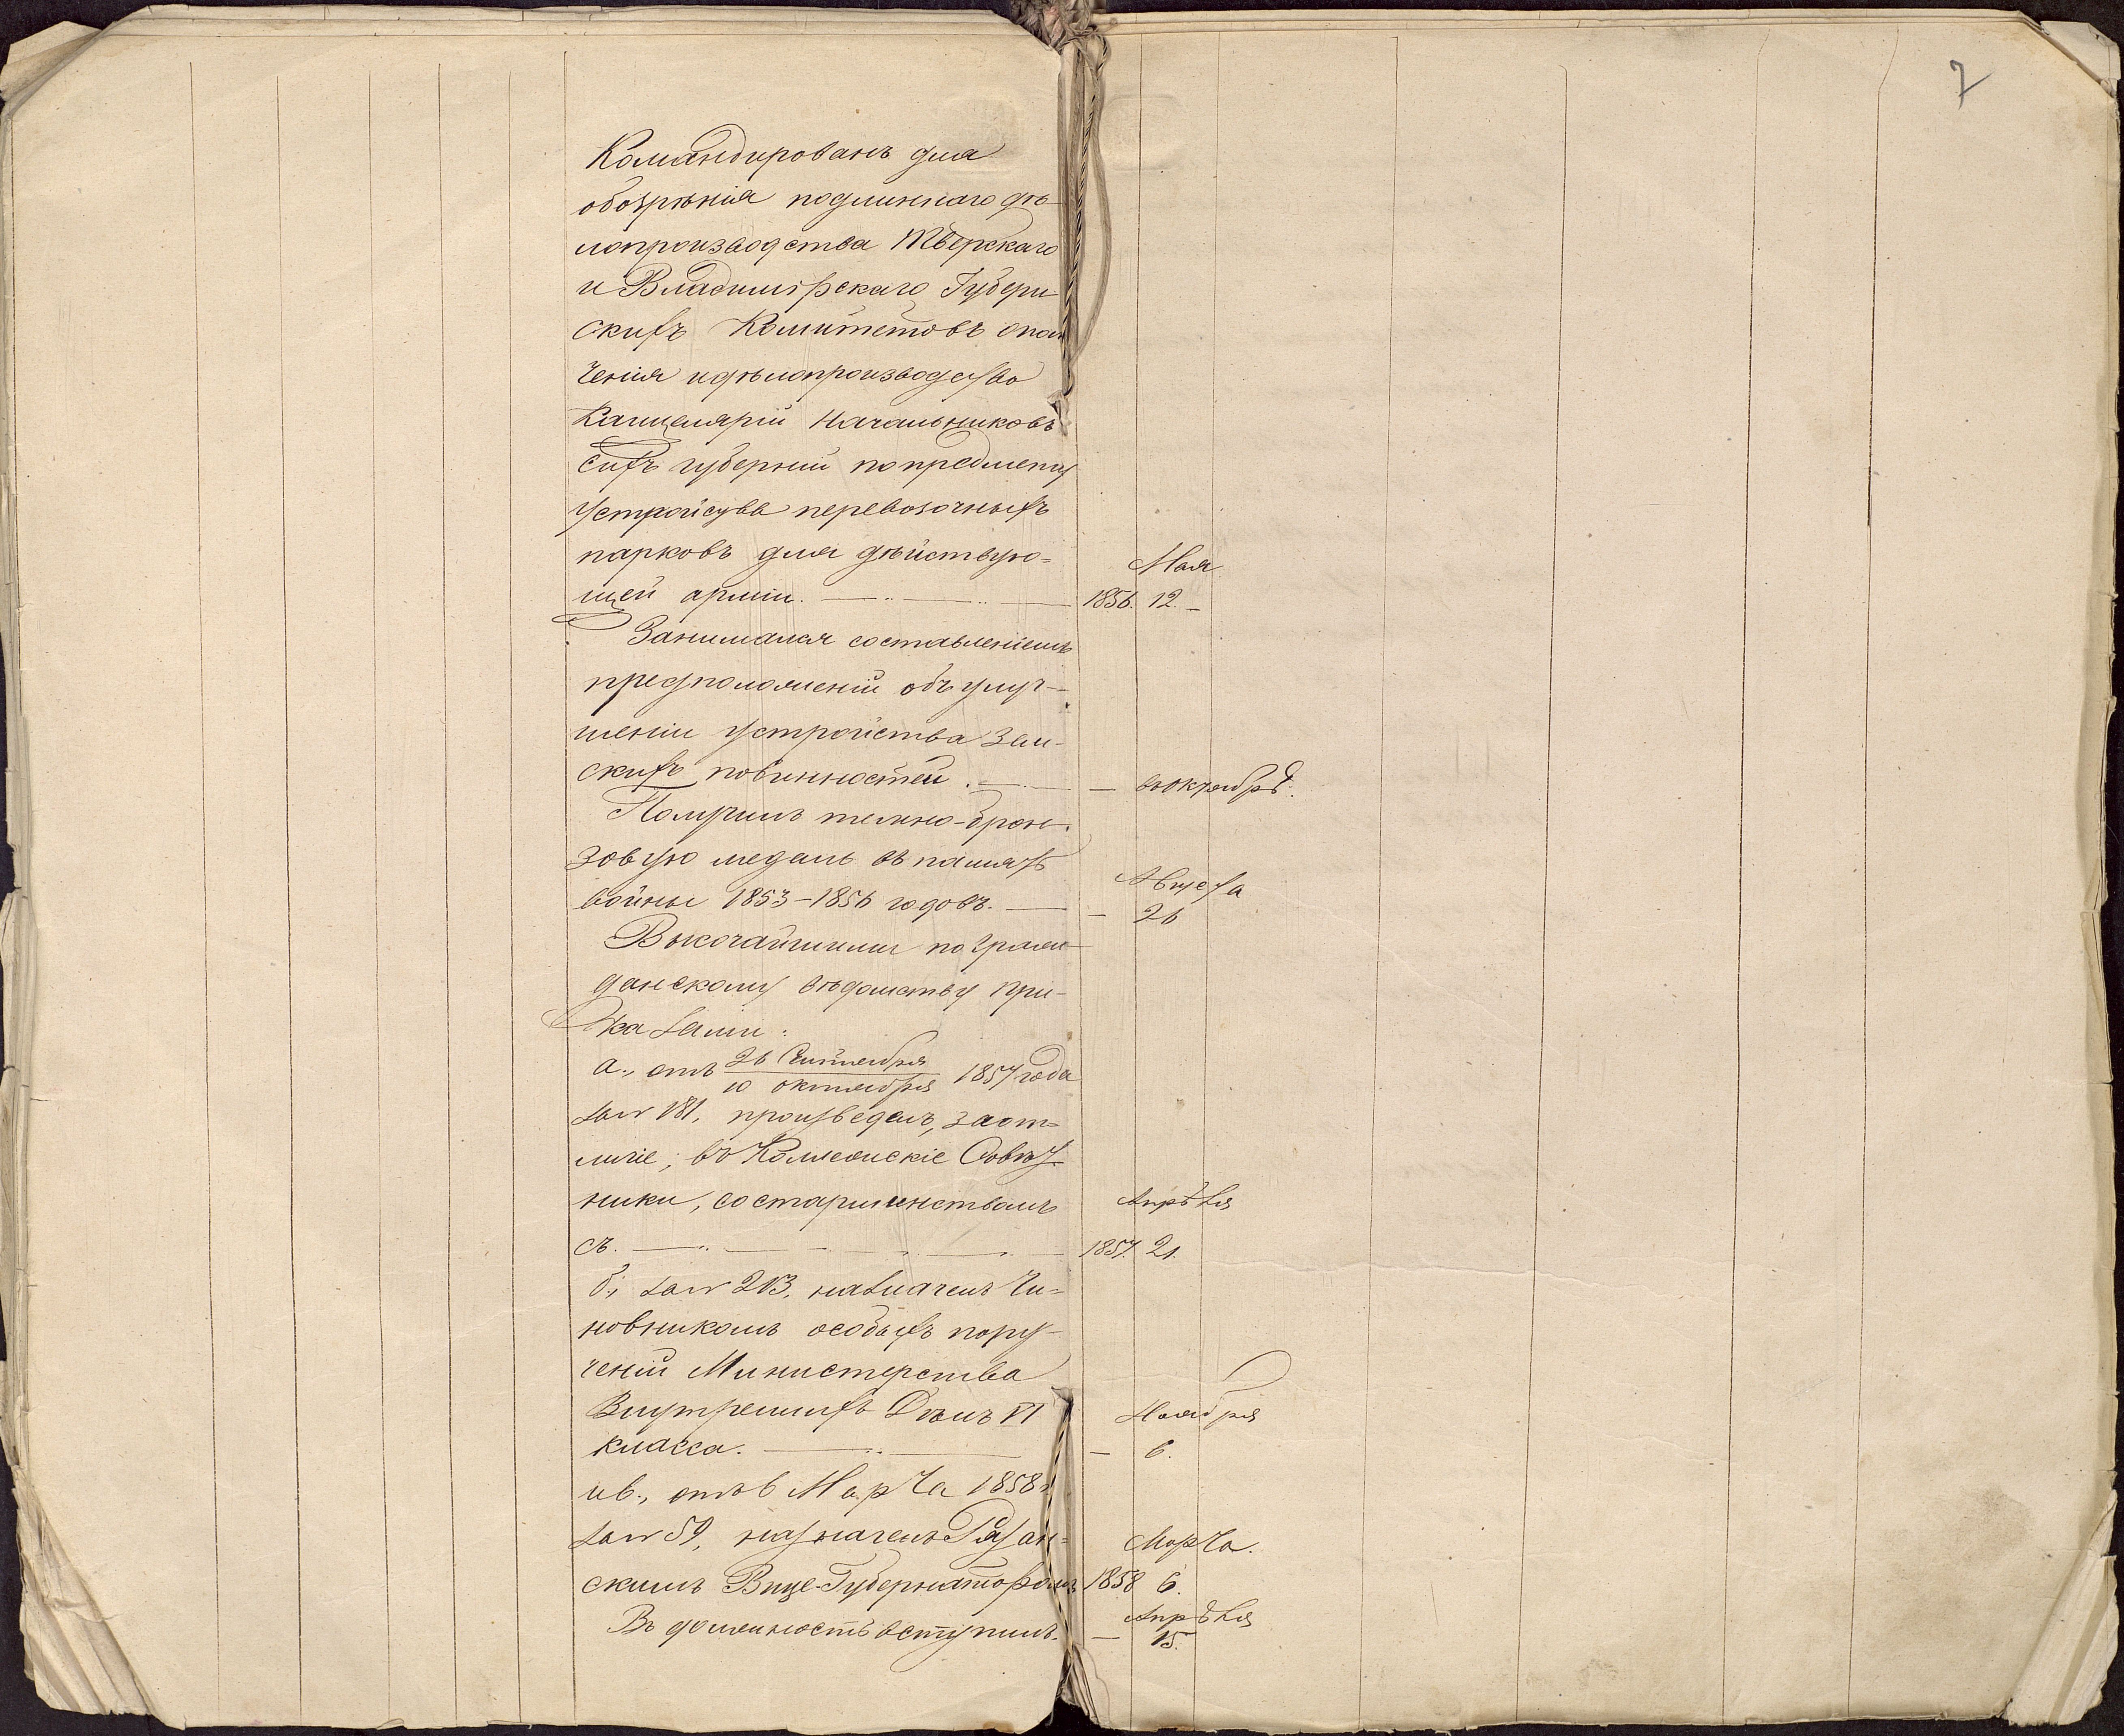 7
Командированъ для
обозрѣнія подлиннаго дѣ-
лопроизводства Тверскаго
и Владимірскаго Губерн-
скихъ Комитетовъ опол
ченія и дѣлопроизводство
Канцелярій Начальниковъ
сихъ губерній по предмету
устройства перевозочныхъ
парковъ для дѣйствую=
Мая
щей арміи. 1856. 12. -
Занимался составленіемъ
предположеній объ улуч-
шеніи устройства Зем-
скихъ повинностей. — въ октябрѣ.
Получилъ темно-брон-
зовую медаль въ память
Августа
войны 1853-1856 годовъ. — 26
Высочайшими по граж-
данскому вѣдомству при-
казами:
а., отъ 26 Сентября / 10 октября 1857 года
за № 181, произведенъ, за от=
личіе, въ Коллежскіе Совѣт-
Апрѣля
ники, со старшинствомъ
съ. 1857. 21.
б., за № 213, назначенъ Чи=
новникомъ особыхъ пору-
ченій Министерства
Ноября
Внутреннихъ Дѣлъ VI
класса. — 6.
и в., отъ 6 Марта 1858 г.
Марта.
за № 59, назначенъ Рязан=
скимъ Вице-Губернаторомъ 1858 6.
Апрѣля
Въ должность вступилъ. — 15.